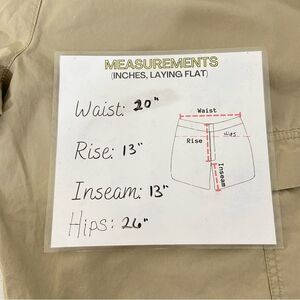 MEASUREMENTS
(INCHES, LAYING FLAT)
Waist: 20"
Rise: 13"
Inseam: 13"
Hips: 26"
Waist
Hips
Rise
Inseam